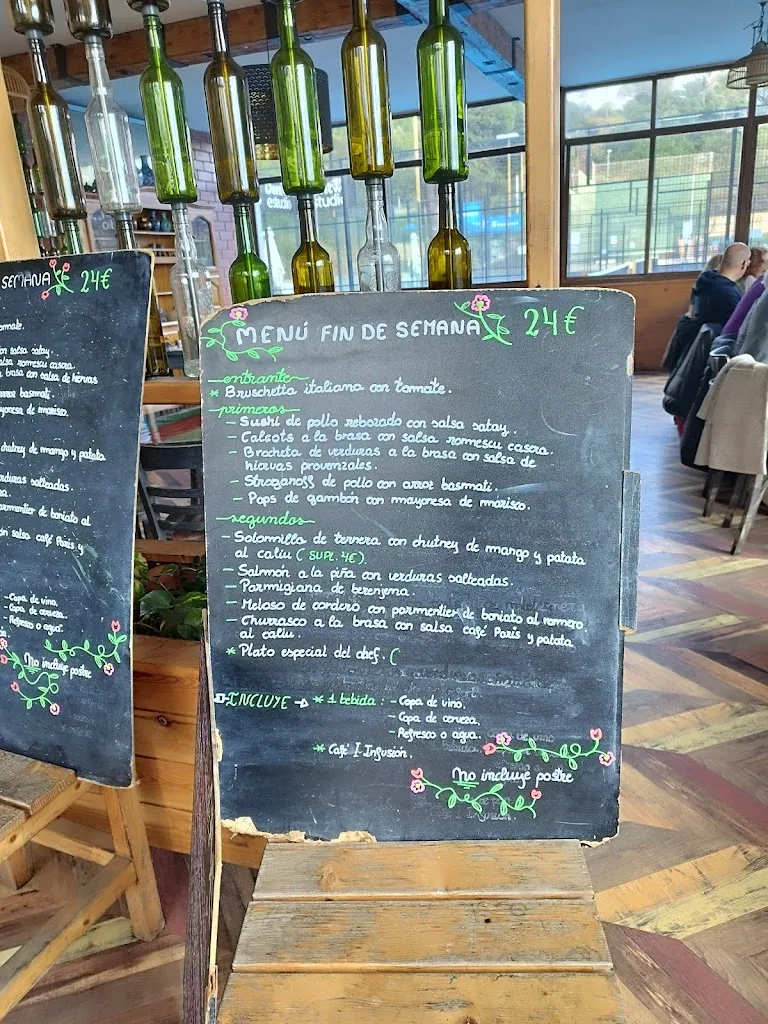 MENÚ FIN DE SEMANA 24€
entrante
* Bruschetta italiana con tomate.
primeros
- Sushi de pollo rebozado con salsa satay.
- Calçots a la brasa con salsa romescu casera.
- Brocheta de verduras a la brasa con salsa de
hiervas provenzales.
- Stroganoff de pollo con arroz basmati.
- Pops de gambón con mayonesa de marisco.
segundos
- Solomillo de ternera con chutney de mango y patata
al caliu (SUPL. 4€)
- Salmón a la piña con verduras salteadas.
- Parmigiana de berenjena.
- Meloso de cordero con parmentier de boniato al romero
- Churrasco a la brasa con salsa café París y patata
al caliu.
* Plato especial del chef. (
INCLUYE → * 1 bebida : - Copa de vino.
- Copa de cerveza.
- Refresco o agua.
* Café I Infusión.
No incluye postre
SEMANA 24€
tomate.
con salsa satay.
salsa romescu casera.
brasa con salsa de hiervas
arroz basmati.
mayonesa de marisco.
chutney de mango y patata
verduras salteadas.
parmentier de boniato al
con salsa café París y
- Copa de vino.
- Copa de cerveza.
- Refresco o agua.
No incluye postre